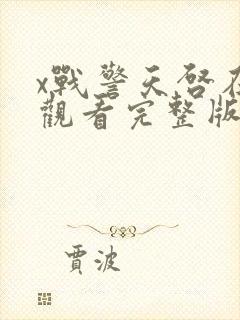 x戰警天啓在
觀看完整版
賈波